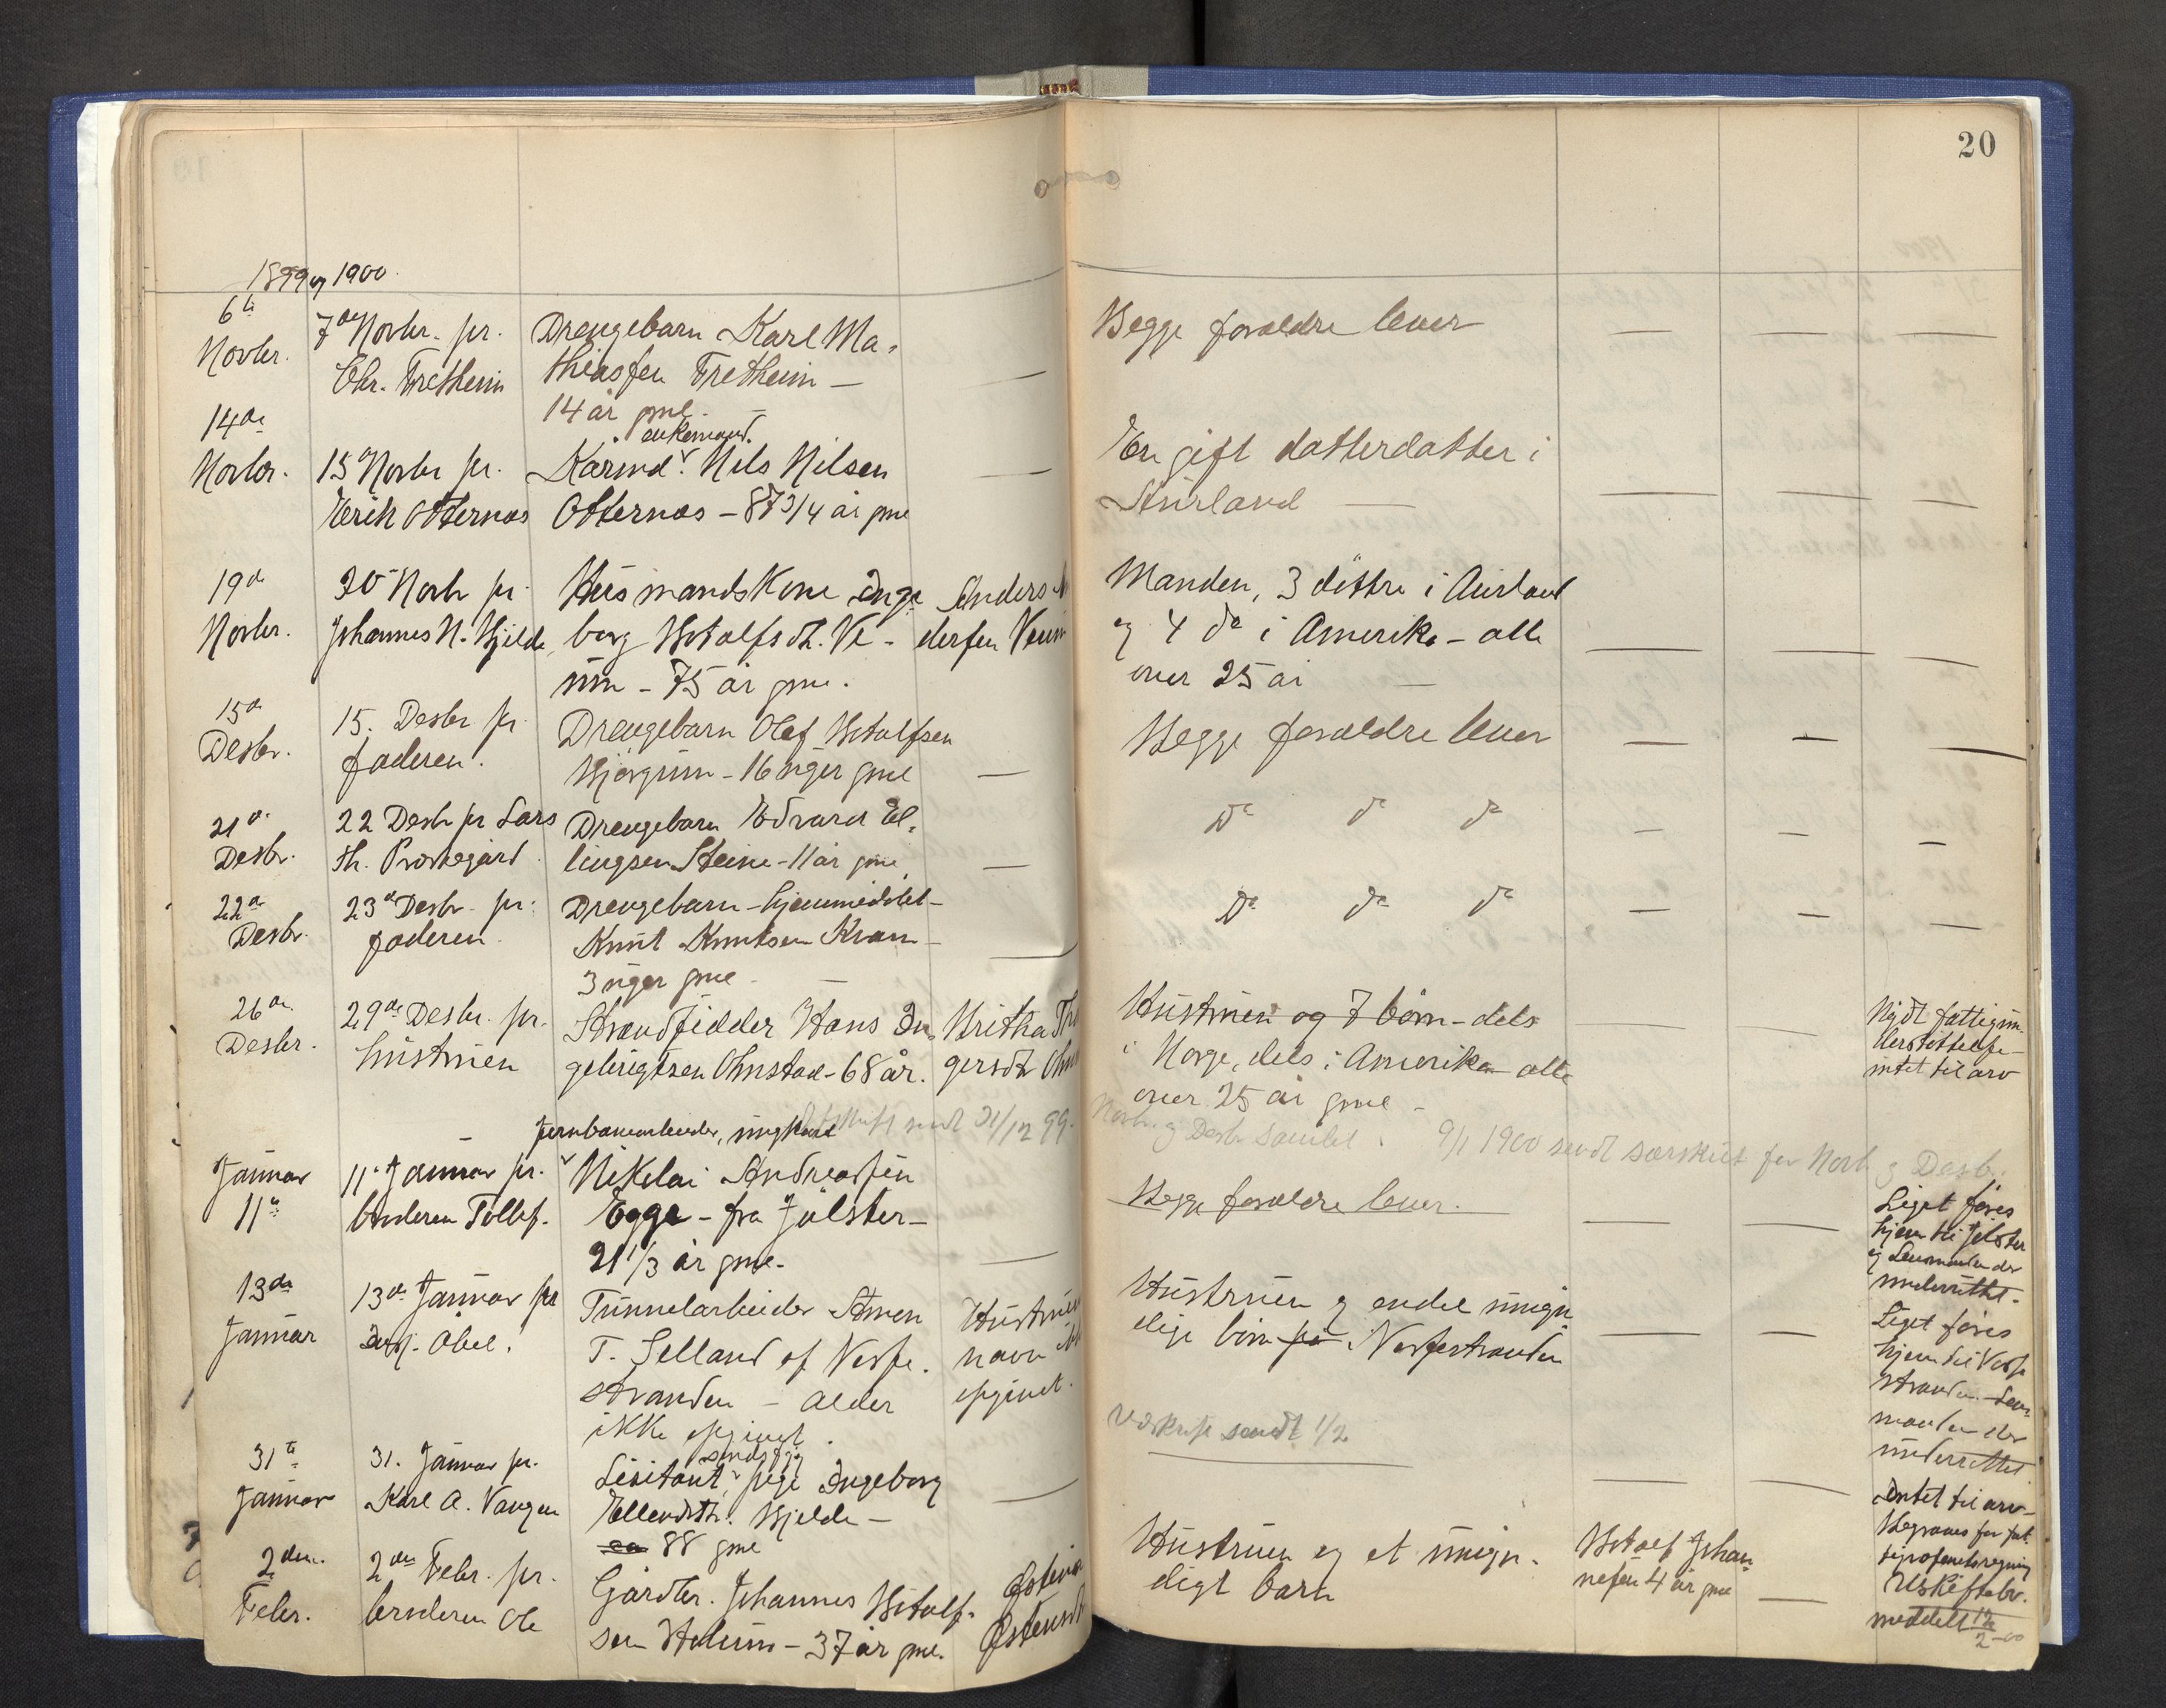 20
1899 og 1900.
6te
Novbr.
7de Novbr. pr.
Chr. Fretheim
Drengebarn Karl Ma-
thiasen Fretheim —
14 år gml.
Begge forældre lever
14de
Novbr.
15 Novbr pr.
Erik Otternæs
enkemand.
Kårmd. Nils Nilsen
Otternæs – 87 3/4 år gml
En gift datterdatter i
Aurland
19de
Novbr.
20 Novb pr.
Johannes N. Hjelde
Husmandskone Inge
borg Botolfsdt. Ve-
um – 75 år gml.
Anders
dersen
Manden, 3 døttre i Aurland
og 4 do i Amerika – alle
over 25 år
15de
Desbr.
15. Desbr pr.
faderen.
Drengebarn Olaf Botolfsen
Bjørgum – 16 uger gml
Begge forældre lever
21de
Desbr.
22 Desbr pr Lars
th. Prestegård
Drengebarn Edvard El-
lingsen Steine – 11 år gml
Do do do
22de
Desbr.
23de Desbr. pr.
faderen.
Drengebarn – hjemmedøbt –
Knut Knutsen Kvam –
3 uger gml
Do do do
26de
Desbr.
29de Desbr. pr.
hustruen
Strandsidder Hans In-
gebrigtsen Ohnstad – 68 år.
Britha
gersdt
Hustruen og 7 børn – dels
i Norge, dels i Amerika alle
over 25 år gml –
Nydt fattigun-
derstøttelse –
intet til arv
sendt 31/12 99.
Novb. og Desbr samlet. 9/1 1900 sendt særskilt for Novb og Desbr.
Januar
11te
11te Januar pr.
broderen Tollef.
Jernbanearbeider, ungkarl
Nikolai Andreassen
Egge – fra Jølster –
21 1/3 år gml.
Begge forældre lever.
Liget føres
hjem til Jølster
og Lensmanden der
underrettet.
13de
Januar
13de Januar pr
Abel.
Tunnelarbeider Simen
T. Selland af Vossestranden – alder
ikke opgivet.
Hustruens
navn ikke
opgivet.
Hustruen og endel umyn
dige børn på Vossestranden
Liget føres
hjem til Vosse
stranden – Lens
manden der
underrettet.
Udskrift sendt 1/2
31te
Januar
31. Januar pr.
Karl A. Vangen
sindssyg
Lisitant, pige Ingeborg
Ellendsdtr. Hjelde –
88 gml
Intet til arv –
Begraves for fat-
tigvæsenets regning
2den
Febr.
2den Febr. pr.
broderen Ole
Gårdbr. Johannes Botolf-
sen Holum – 37 år gml.
Hustruen og et umyn-
digt barn
Botolf Johan
nesen 4 år gml
Uskiftebv.
meddelt 12/2 – 00